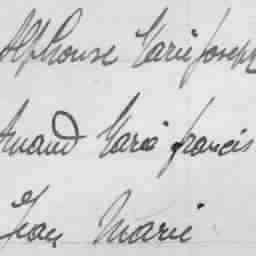 Alphonse Marie Joseph
Amand Maria francis
Jean Marie